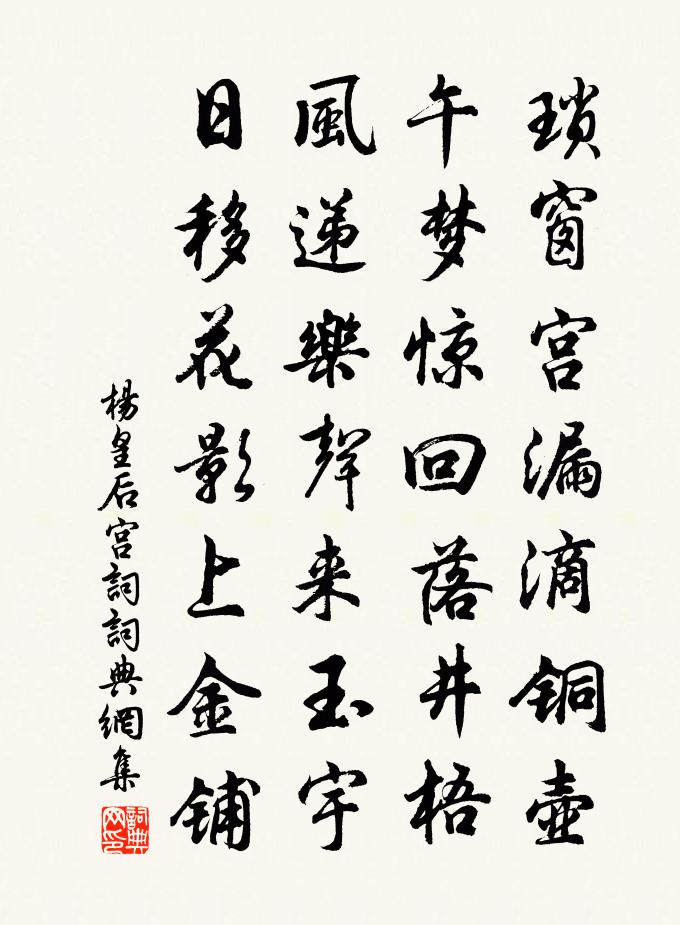 琐窗宫漏滴铜壶
午梦惊回落井梧
風递樂聲来玉宇
日移花影上金铺
楊皇后宫詞詞典網集
詞典网印